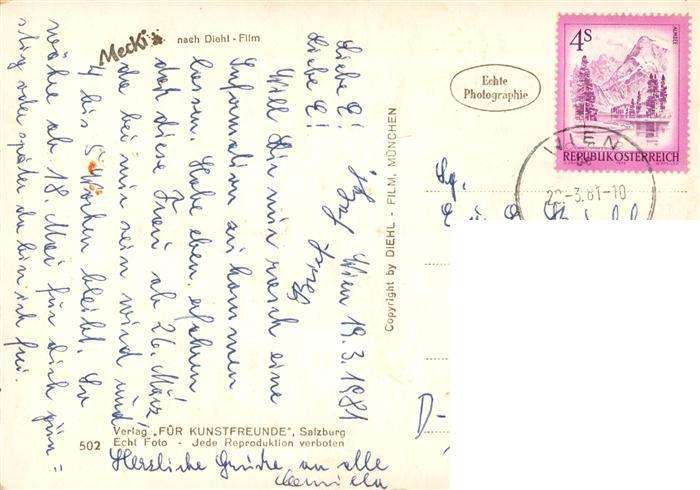 Mecki
nach Diehl - Film
Wien 19.3.1981
Liebe E!
Liebe E!
Will Dir nur rasch eine
Information zukommen
lassen. Habe eben erfahren
daß diese Frau ab 26. März
da bei mir sein wird und
4 bis 5 Wochen bleibt. Du
wäre ab 18. Mai für dich güns=
stig oder später da bin ich frei.
Herzliche Grüße an alle
Copyright by DIEHL - FILM, MÜNCHEN
Verlag „FÜR KUNSTFREUNDE", Salzburg
502 Echt Foto - Jede Reproduktion verboten
Echte
Photographie
4S
ALMSEE
REPUBLIK ÖSTERREICH
WIEN
20.-3.81-10
D-